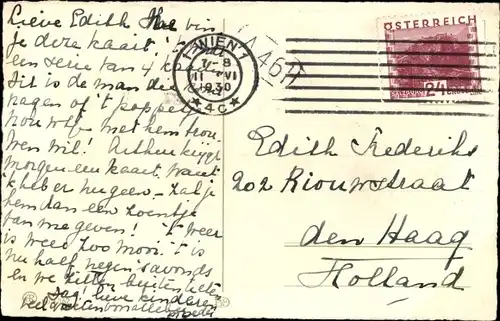 Lieve Edith Hoe vin
je deze kaart!
een serie van 4 k
Dit is de man die
of 't poppetje
nou zelf met hem trou
wen wil! Arthur krijgt
morgen een kaart, want
ik heb er nu geen. Zal je
hem dan een zoentje
van me geven! 't weer
is weer zoo mooi. 't is
nu half negen 's avonds
en we zitten buiten te eten
Dag lieve kinderen
1 WIEN 1
11 VI
1930
4c
ÖSTERREICH
24
Edith Frederiks
202 Riouwstraat
den Haag
Holland